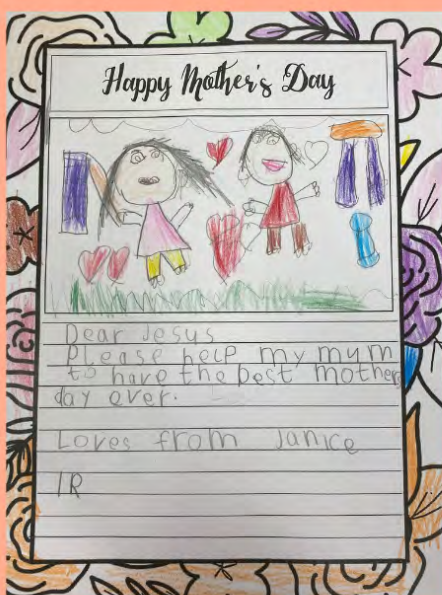 Happy Mother's Day
Dear Jesus
Please help my mum
to have the best mothers
day ever.
Loves from Janice
1R